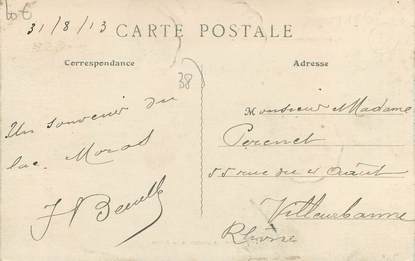 31/8/13
CARTE POSTALE
Correspondance
Adresse
38
Un souvenir du
lac Morat
Monsieur Madame
Perenet
55 rue du 4 Août
Villeurbanne
Rhône